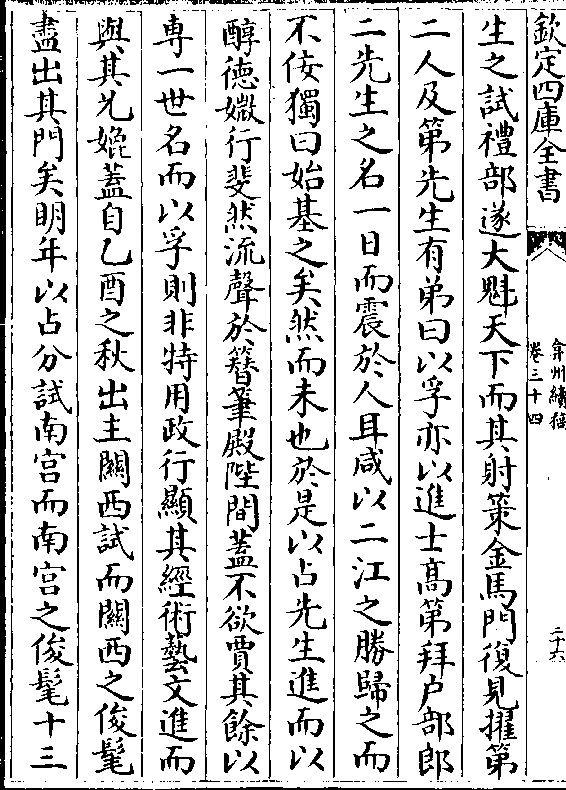 欽定四庫全書
弇州續稿
卷三十四
二十六
生之試禮部遂大魁天下而其射策金馬門復見擢第
二人及第先生有弟曰以孚亦以進士髙第拜户部郎
二先生之名一日而震於人耳咸以二江之勝歸之而
不佞獨曰始基之矣然而未也於是以占先生進而以
醇德媺行斐然流聲於簪筆殿陛間蓋不欲賈其餘以
専一世名而以孚則非特用政行顯其經術藝文進而
與其兄媲蓋自乙酉之秋出主闗西試而闗西之俊髦
盡出其門矣明年以占分試南宫而南宫之俊髦十三